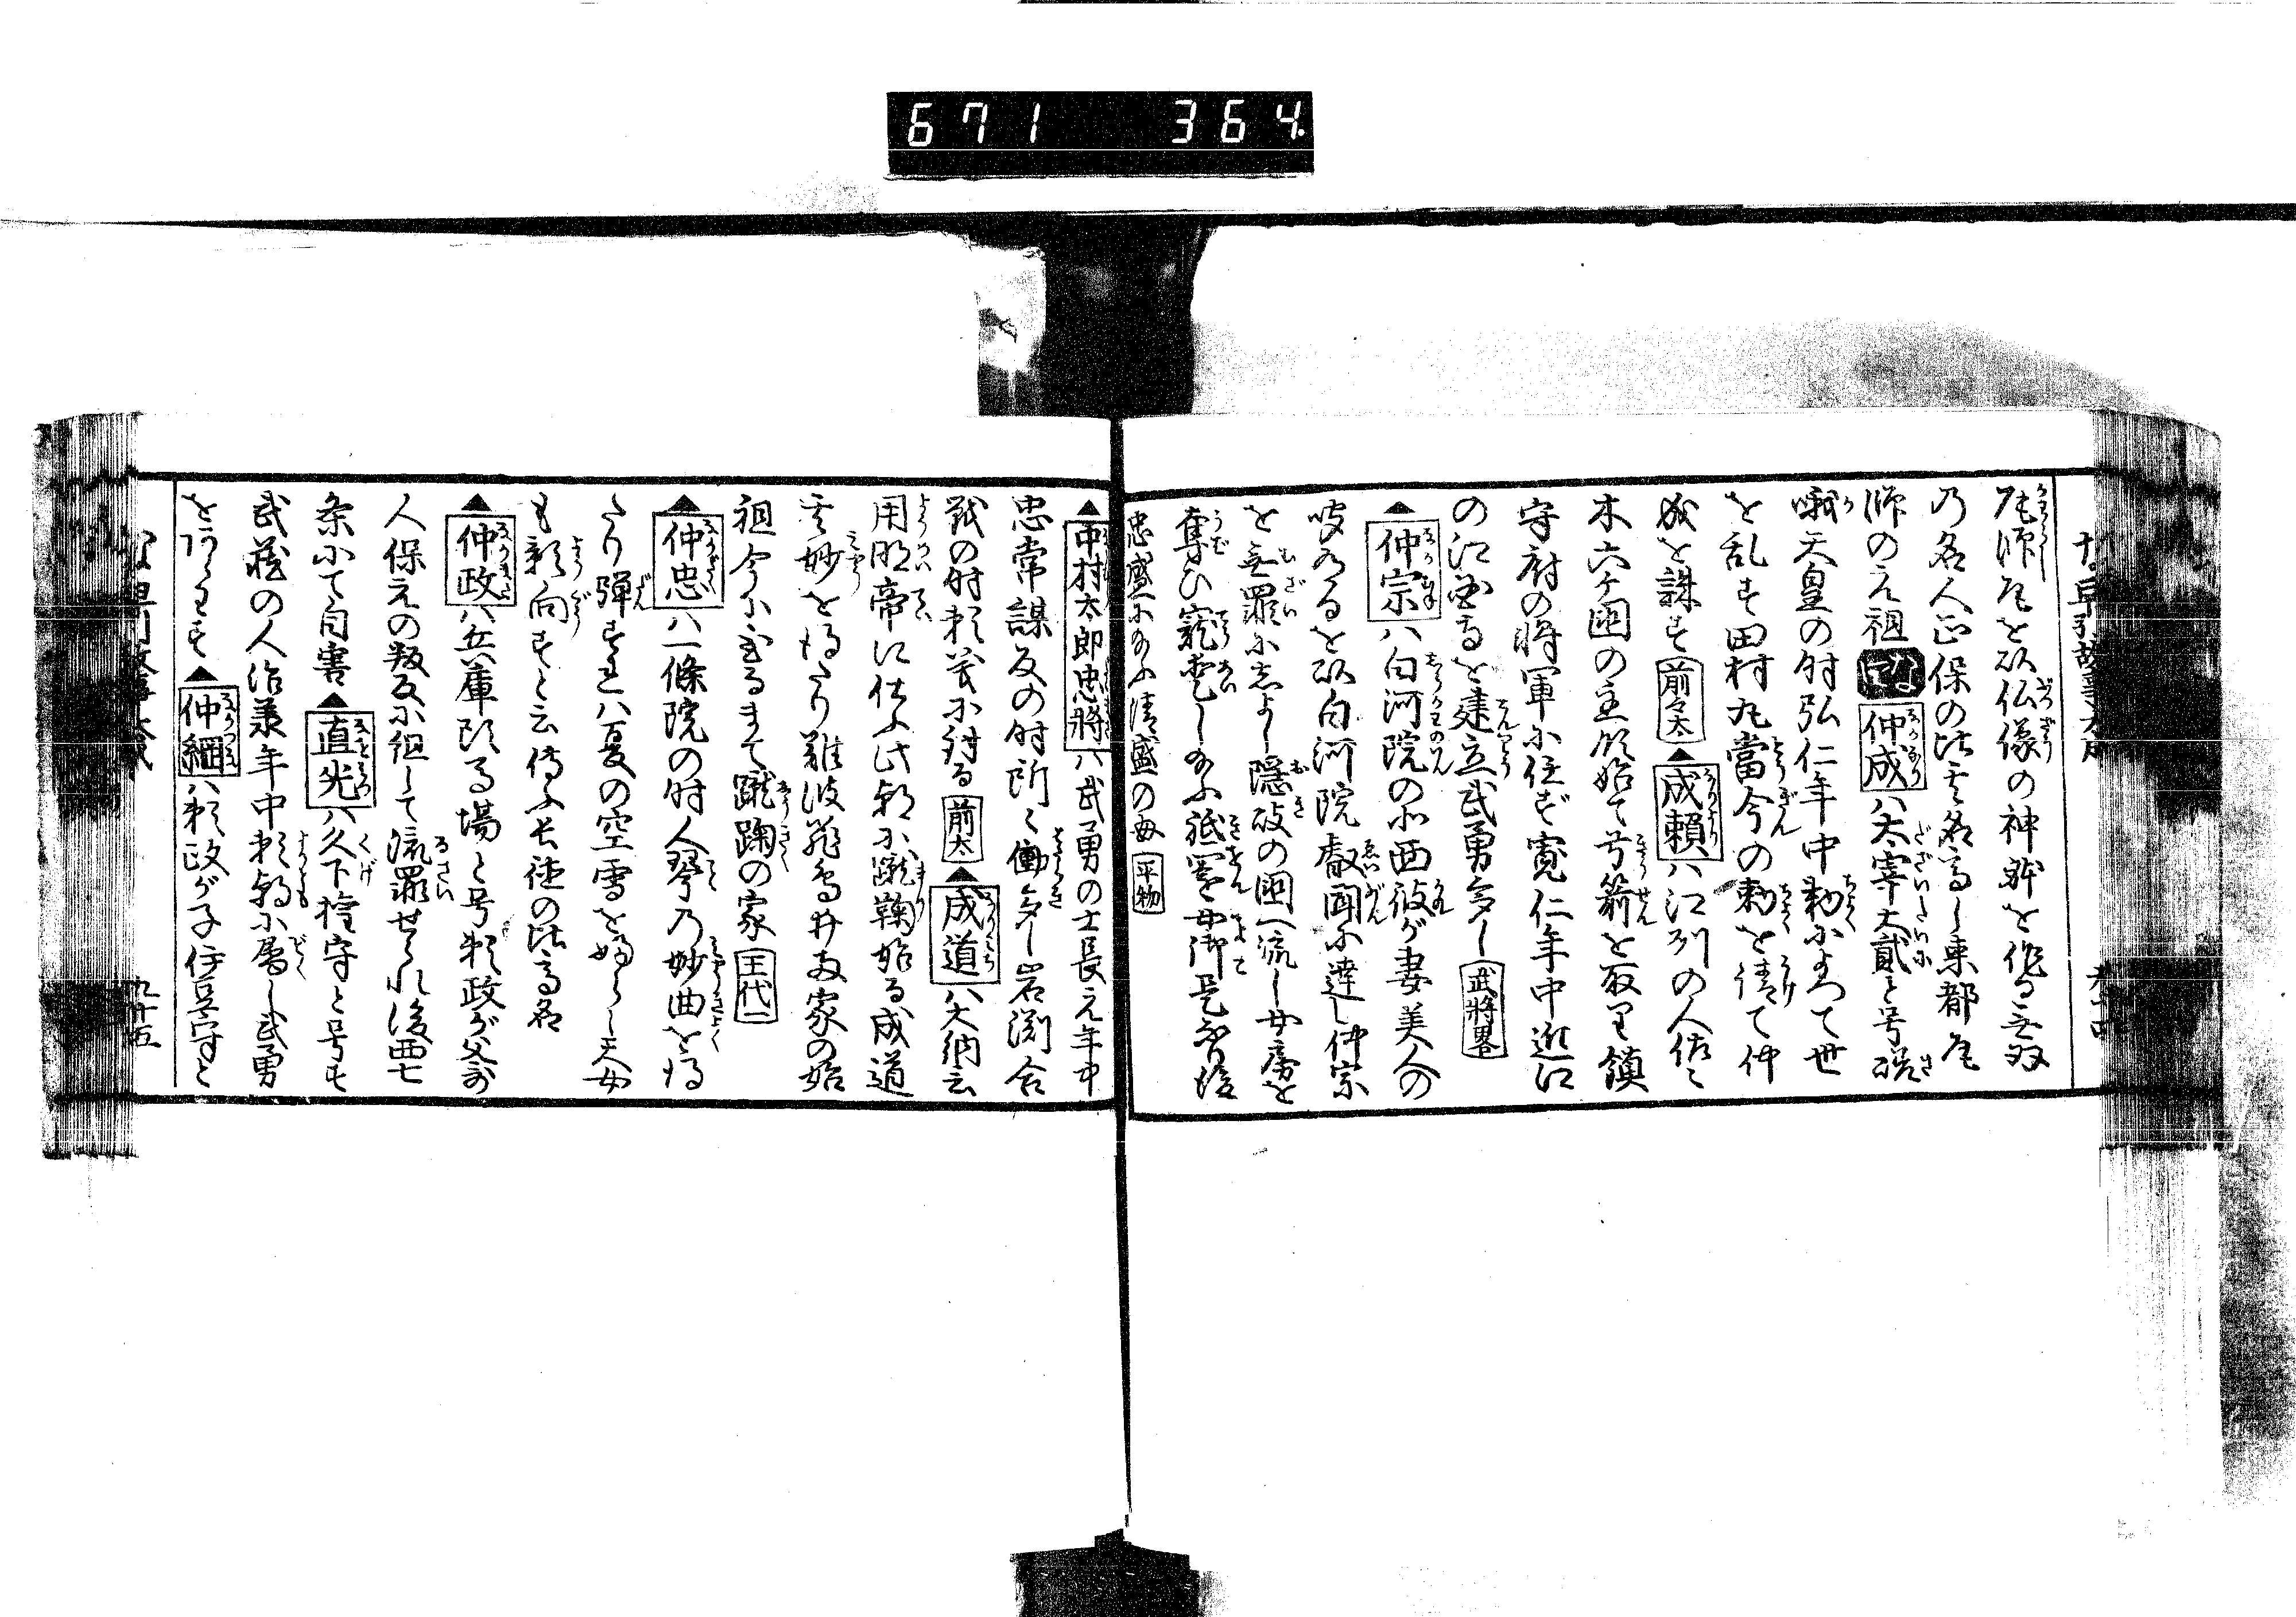 671 364
尾師尾を以仏像の神眸を作る無双
乃名人正保の比其名高し東都尾
師の元祖 な 仲成ハ太宰大貳と号嵯
峨天皇の时弘仁年中勅によつて世
を乱す田村丸當今の勅を請て仲
成を誅す 前々太 ▲成頼ハ江列の人佐々
木六ケ国の主従始て号箭を取り鎮
守府の将軍に任ず寛仁年中近江
の江西寺を建立武勇多し 武將畧
▲仲宗ハ白河院の北面彼が妻美人の
聞あるを以白河院叡聞に達し仲宗
を無罪に志よし隠岐の国へ流し女房を
奪ひ寵愛し給ふ祇園女御是なり後
忠盛に給ふ清盛の母 平物
▲中村太郎忠將ハ武勇の士長元年中
忠常謀反の时所々働多し岩渕合
戦の时頼義に討る 前太 ▲成道ハ大納言
用明帝に仕ふ此朝に蹴鞠始る成道
其妙を得たり難波飛鳥井両家の始
祖今に至るまて蹴鞠の家 王代一
▲仲忠ハ一條院の时人琴乃妙曲を得
たり弾ずれハ夏の空雪を降らし天女
も影向すと云傳ふ長徳の比高名
▲仲政ハ兵庫頭る場と号頼政が父前
人保元の叛反に組して流罪せられ後西七
条にて自害 ▲直光ハ久下権守と号す
武蔵の人治承年中頼朝に属し武勇
をあらハす ▲仲綱ハ頼政が子伊豆守と
九十五